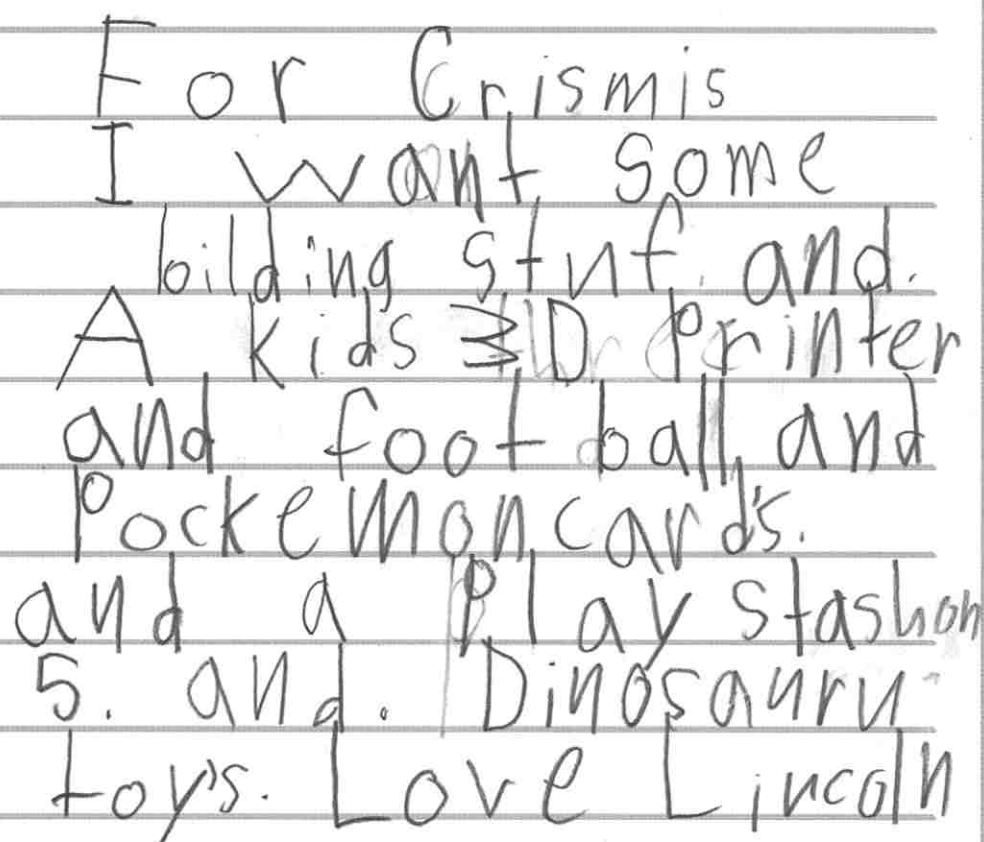 For Crismis
I want some
bilding stuf. and.
A kids 3D Printer
and foot ball, and
Pockemon cards.
and a Play stashon
5. and. Dinosauru
toy's. Love Lincoln